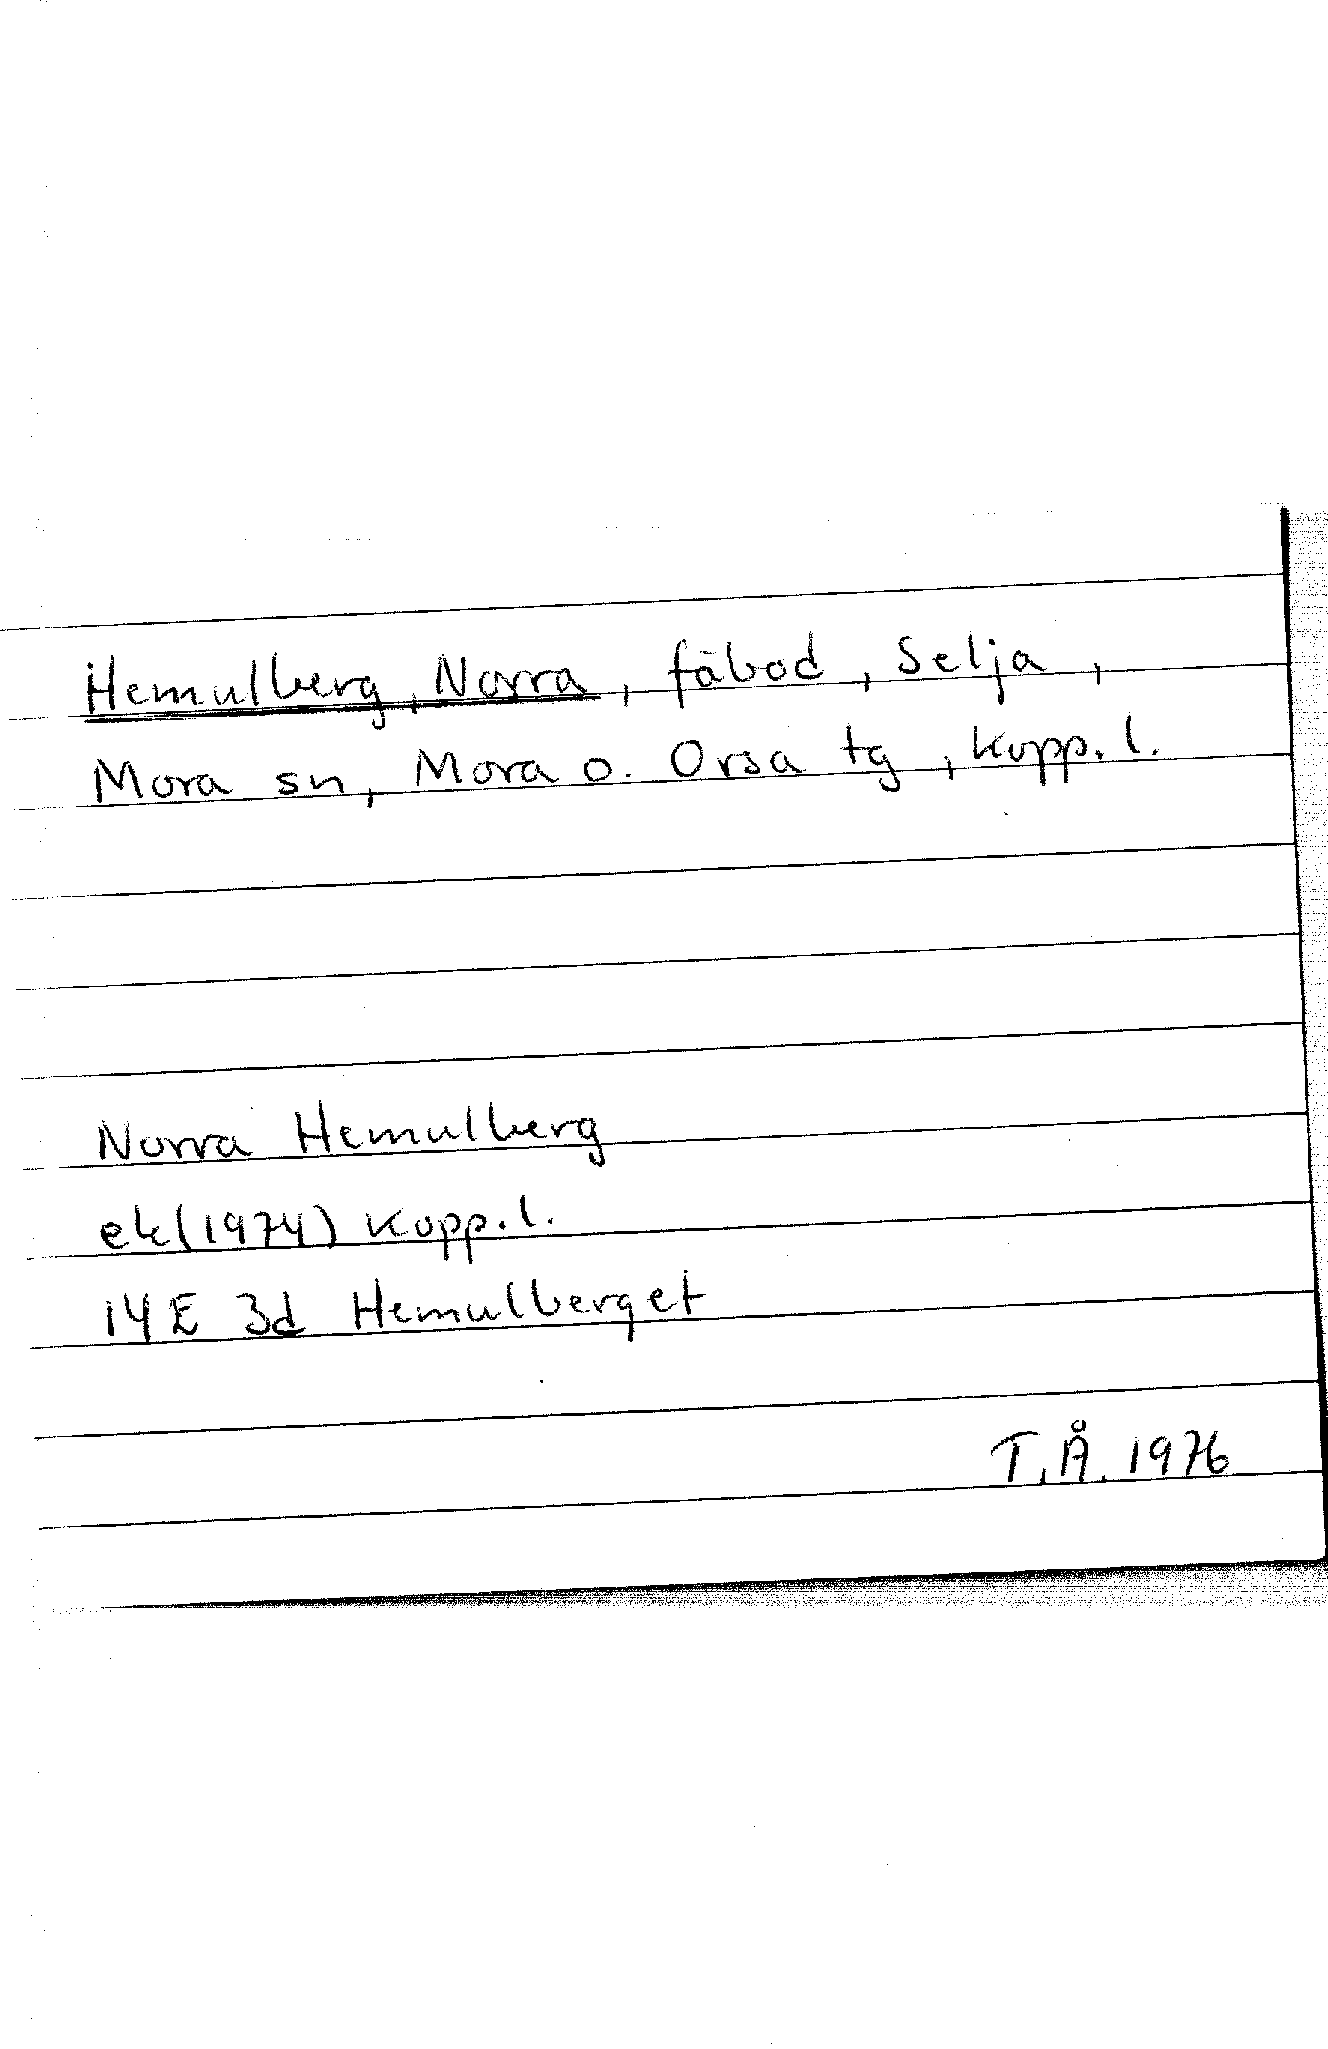 Hemulberg, Norra, fäbod, Selja,
Mora sn, Mora o. Orsa tg, Kopp. l.
Norra Hemulberg
ek(1974) Kopp. l.
14E 3d Hemulberget
T.Å. 1976